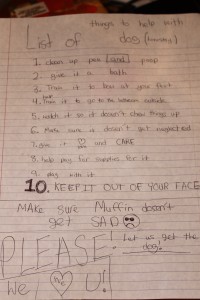 things to help with
List of dog (training)
1. clean up pee (and) poop
2. give it a bath
3. Train it to be at your feet
4. Train it to go to the bathroom outside
5. watch it so it doesn't chew things up
6. Make sure it doesn't get neglected
7. Give it ♡ and CARE
8. help pay for supplies for it
9. play with it
10. KEEP IT OUT OF YOUR FACE
MAKE sure Muffin doesn't
get SAD ☹
PLEASE!
Let us get the
dog!
We ♡ U!